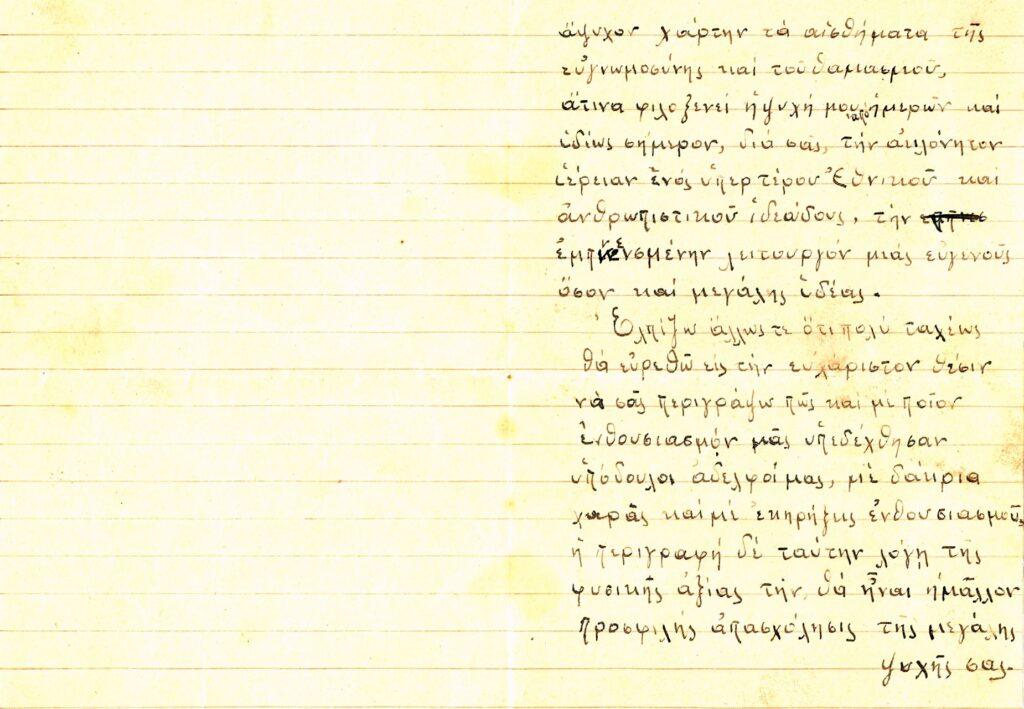 ἄψυχον χάρτην τά αἰσθήματα τῆς
εὐγνωμοσύνης καί τοῦ θαμασμοῦ,
ἅτινα φιλοξενεῖ ἡ ψυχή μου ἀπό ἡμερῶν καί
ἰδίως σήμερον, διά σᾶς, τήν ἀκλόνητον
ἱέρειαν ἑνός ὑπερτέρου Ἐθνικοῦ καί
ἀνθρωπιστικοῦ ἰδεάδους, τήν
ἐμπνευσμένην λειτουργόν μιάς εὐγενοῦς
ὅσον καί μεγάλης ἰδέας.
Ἐλπίζω ἄλλωστε ὅτι πολύ ταχέως
θά εὑρεθῶ εἰς τήν εὐχάριστον θέσιν
νὰ σᾶς περιγράψω πῶς καί μέ ποῖον
ἐνθουσιασμόν μᾶς ὑπεδέχθησαν
ὑπόδουλοι ἀδελφοί μας, μέ δάκρια
χαρᾶς καί μέ ἐκρήξεις ἐνθουσιασμοῦ,
ἡ περιγραφή δέ ταύτην λόγῳ τῆς
φυσικῆς ἀξίας τήν, θά ἦναι ἡ μᾶλλον
προσφιλής ἀπασχόλησις τῆς μεγάλης
ψυχῆς σας.